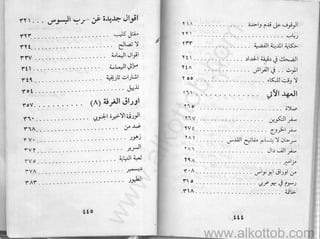 الوقوف على قدم واحدة ٢١٨
رباب ٢٢١
حكاية المدينة الفضية ٢٣٣
الضحك في دقيقة الحداد ٢٤١
الموت في الفراش ٢٤٨
لا وقت للبكاء ٢٥٥
العهد الآتي ٢٦١
صلاة ٢٦٥
سفر التكوين ٢٦٧
سفر الخروج ٢٧٤
سفر ألف دال ٢٨٦
مزامير ٢٩٧
من أوراق أبو نواس ٣٠٨
رسوم في بهو عربي ٣١٥
خاتمة ٣١٨
٤٤٤
أقوال جديدة عن حرب البسوس ٣٢١
مقتل كليب ٣٢٣
لا تصالح ٣٢٤
أقوال اليمامة ٣٣٧
مراثي اليمامة ٣٤١
إشارات تاريخية ٣٤٩
تذييل ٣٥٤
أوراق الغرفة (٨) ٣٥٧
الورقة الأخيرة الجنوبي ٣٦٠
ضد من ٣٦٨
زهور ٣٧٠
السرير ٣٧٢
لعبة النهاية ٣٧٥
ديسمبر ٣٧٨
الطيور ٣٨٣
٤٤٥
www.alkottob.com
www.alkottob.com